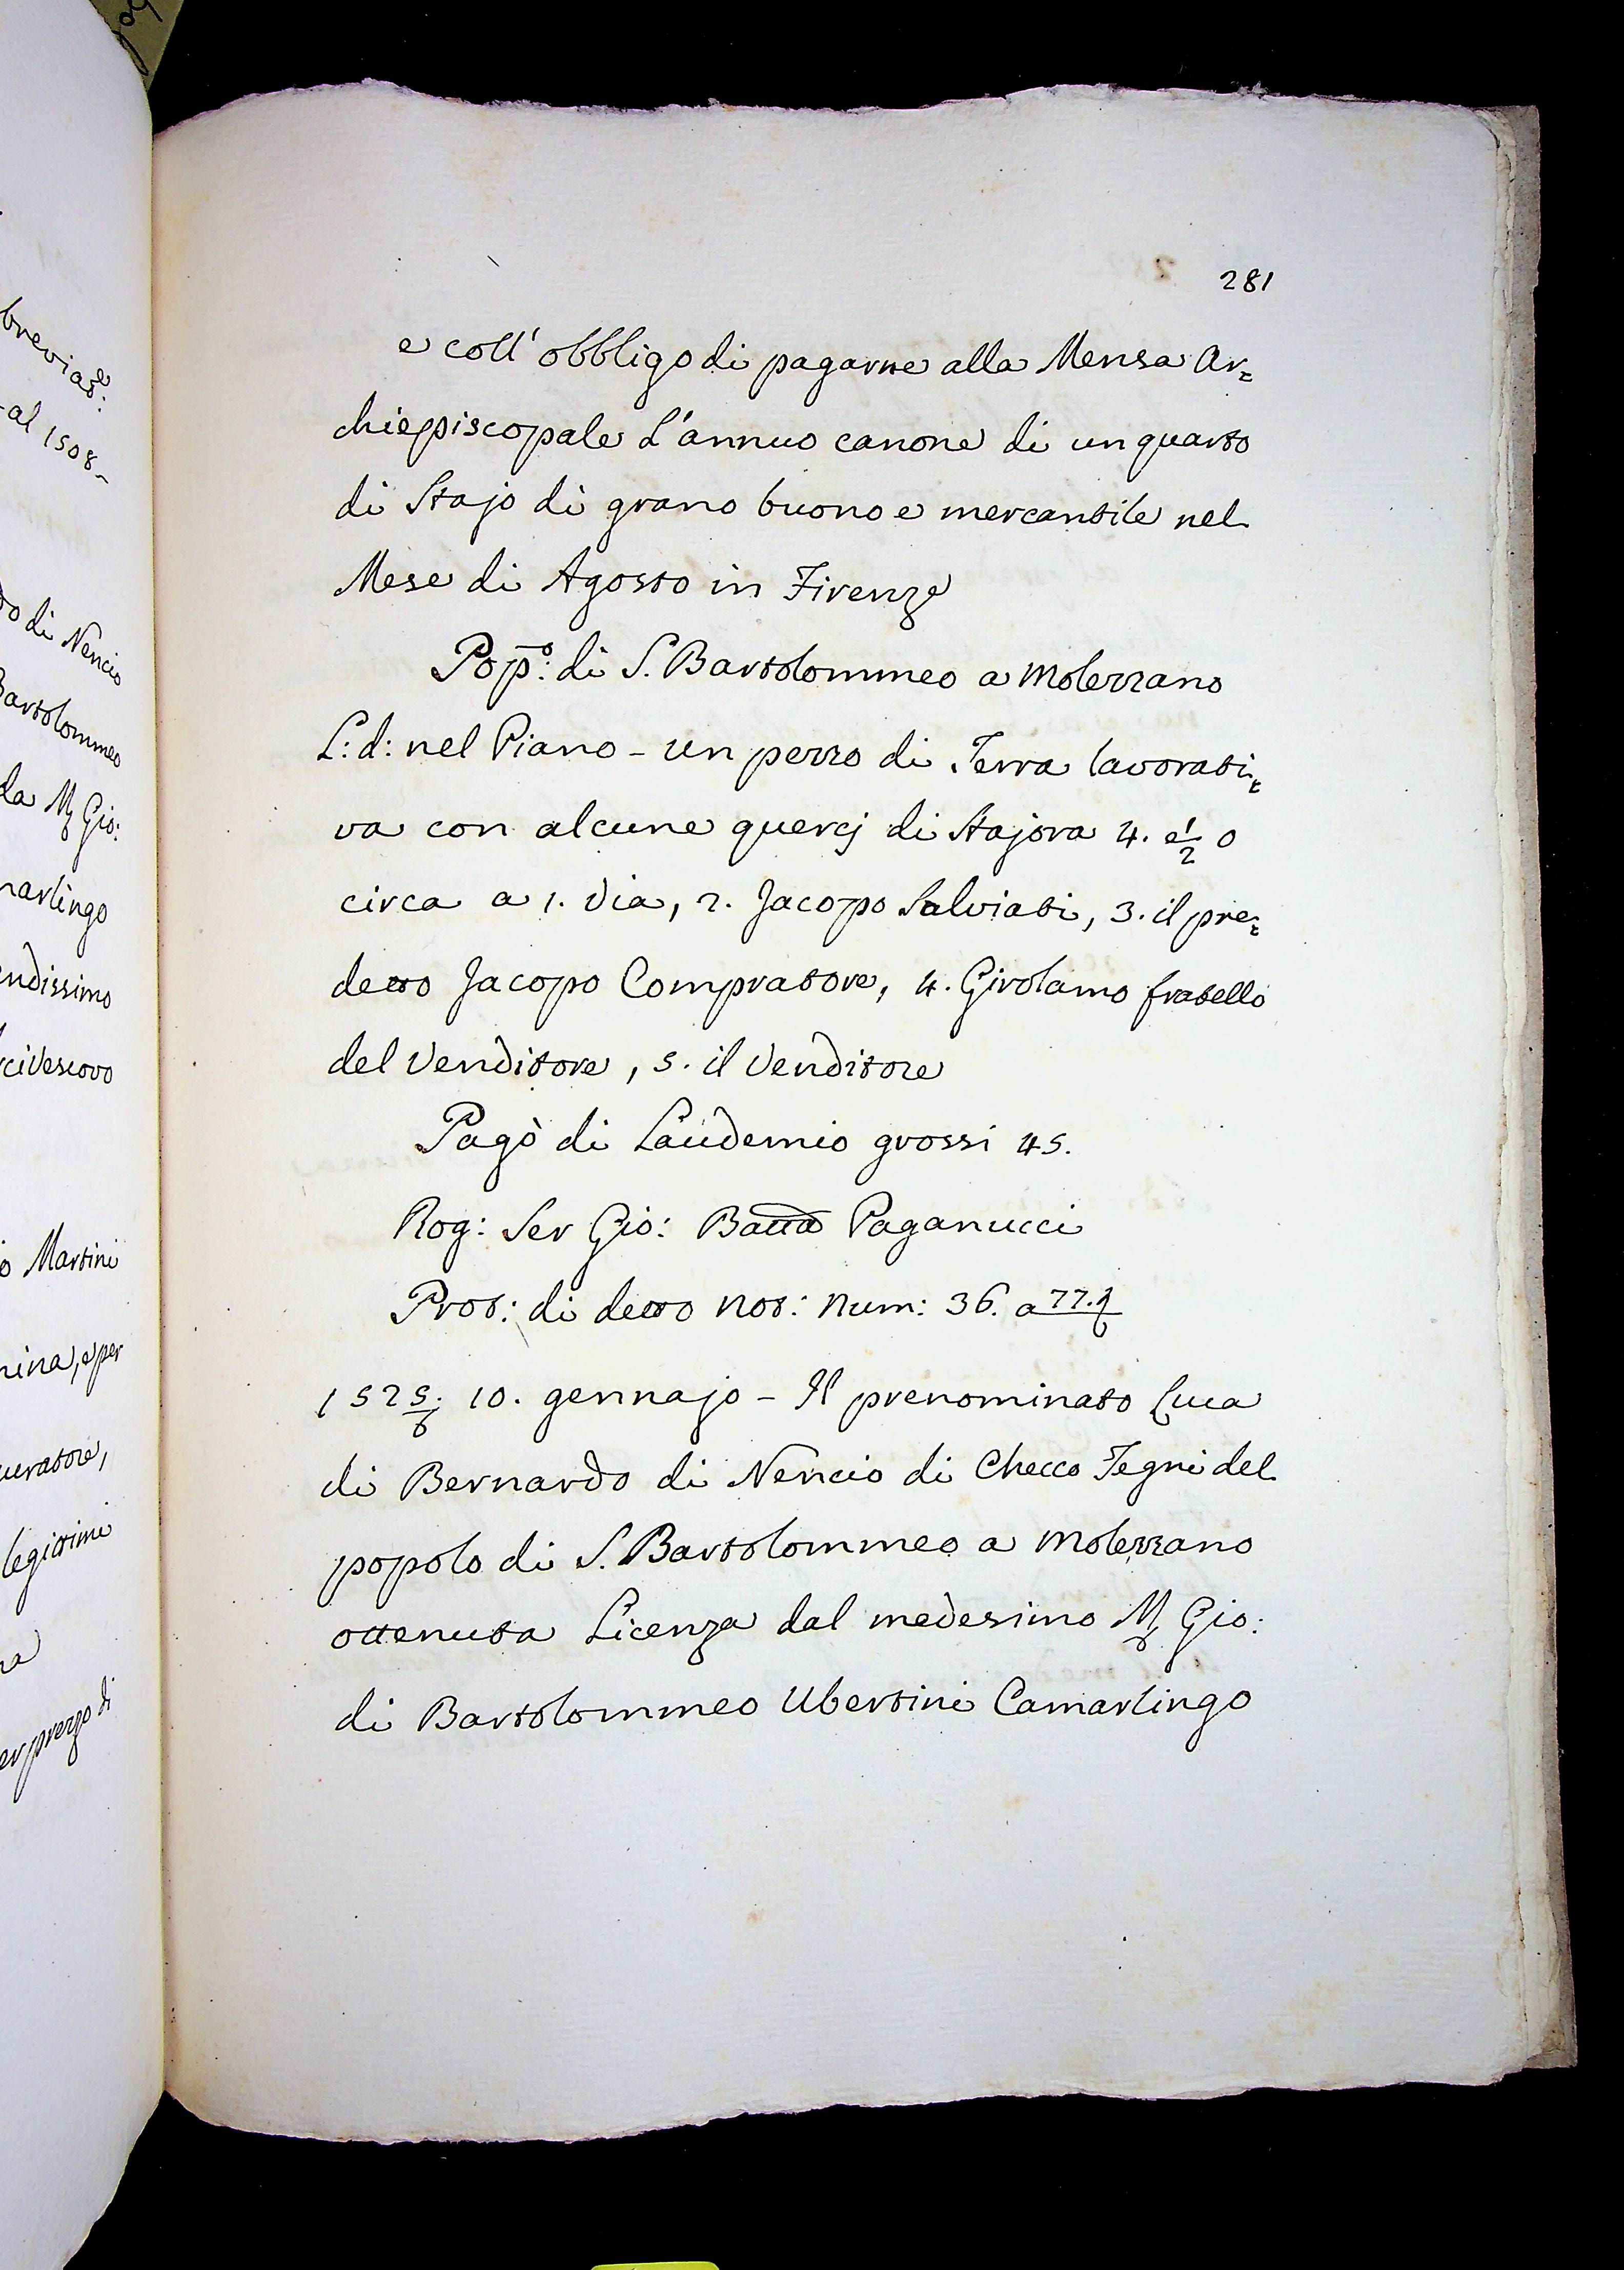 breviat:
al 1508
do di Nencio
Bartolommeo
da Mẟ Gio:
marlingo
endissimo
civescovo
o Martini
nina, e per
curatore,
legittimi
er prezzo di
281
e coll' obbligo di pagarne alla Mensa Ar=
chiepiscopale L'annuo canone di un quarto
di Stajo di grano buono e mercantile nel
Mese di Agosto in Firenze
Pop:º di S. Bartolommeo a Molezzano
L: d: nel Piano - un pezzo di Terra lavorati=
va con alcune quercj di Stajora 4. e ½ o
circa a 1. Via, 2. Jacopo Salviati, 3. il pre=
detto Jacopo Compratore, 4. Girolamo fratello
del Venditore, 5. il Venditore
Pagò di Laudemio grossi 45.
Rog: Ser Gio: Batta Paganucci
Prot: di detto Not: Num: 36. a 77.
1525/6. 10. gennajo - Il prenominato Luca
di Bernardo di Nencio di Checco Tegni del
popolo di S. Bartolommeo a Molezzano
ottenuta Licenza dal medesimo Mẟ Gio:
di Bartolommeo Ubertini Camarlingo